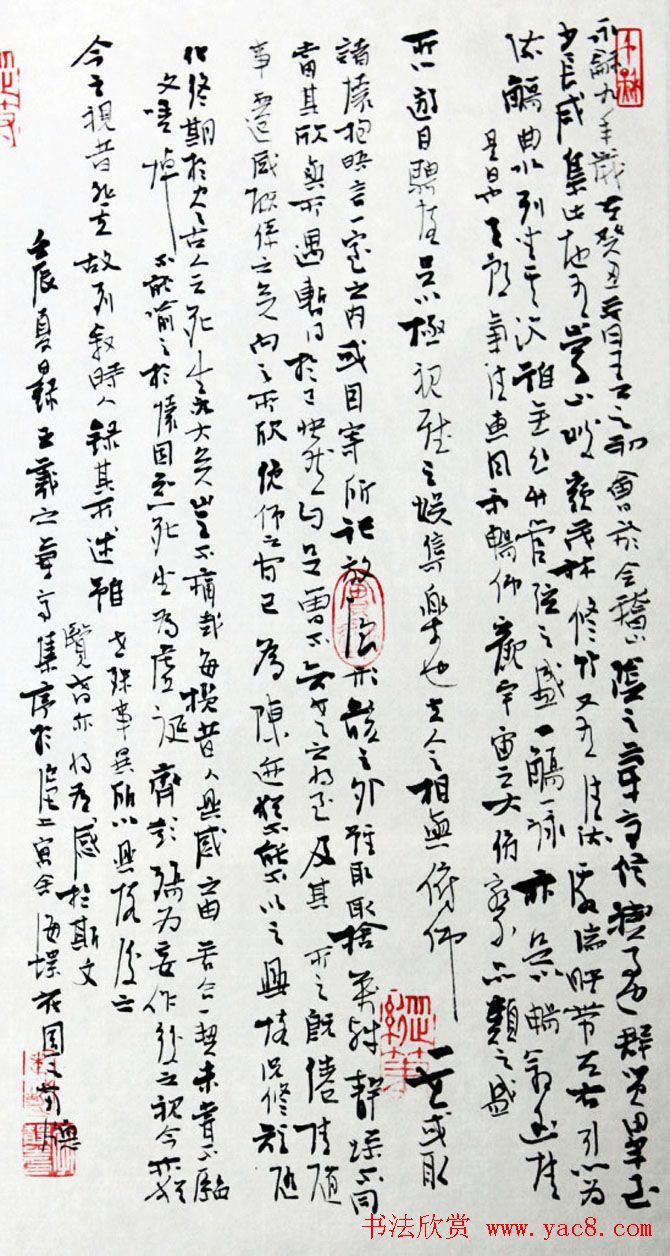 永龢九年歲在癸丑暮春之初會於會稽山陰之蘭亭修禊事也群賢畢至
少長咸集此地有崇山峻嶺茂林修竹又有清流激湍映帶左右引以為
流觴曲水列坐其次雖無絲竹管弦之盛一觴一詠亦足以暢敘幽情
是日也天朗氣清惠風和暢仰觀宇宙之大俯察品類之盛
所以遊目騁懷足以極視聽之娛信可樂也夫人之相與俯仰一世或取
諸懷抱晤言一室之內或因寄所託放浪形骸之外雖取捨萬殊靜躁不同
當其欣於所遇暫得於己快然自足曾不知老之將至及其所之既倦情隨
事遷感慨係之矣向之所欣俛仰之間已為陳迹猶不能不以之興懷況修短隨
化終期於盡古人云死生亦大矣豈不痛哉每攬昔人興感之由若合一契未嘗不臨
文嗟悼不能喻之於懷固知一死生為虛誕齊彭殤為妄作後之視今亦猶
今之視昔悲夫故列敘時人錄其所述雖世殊事異所以興懷後之
覽者亦將有感於斯文
壬辰夏日錄王羲之蘭亭集序於滬上寓舍
书法欣赏 www.yac8.com